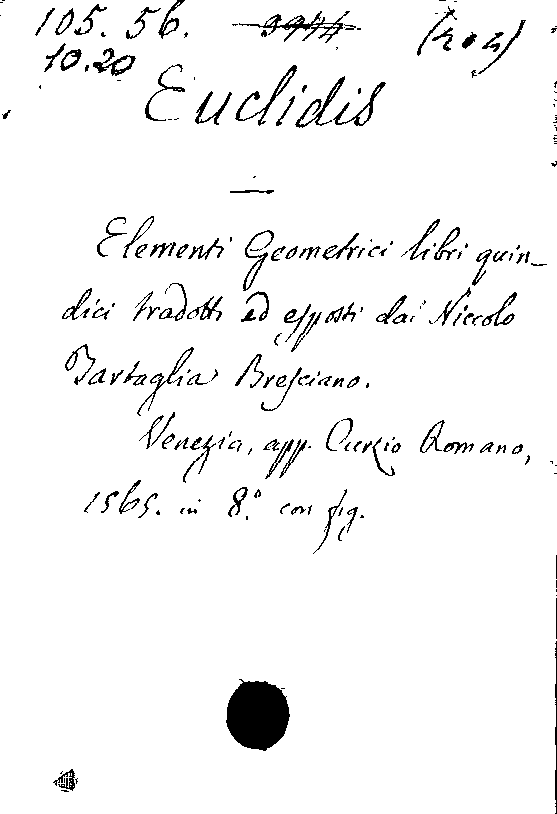 105. 56.
10.20
Euclidis
Elementi Geometrici libri quin-
dici tradotti ed esposti dai Niccolo
Tartaglia Bresciano.
Venezia, app. Curzio Romano,
1565. in 8.° con fig.